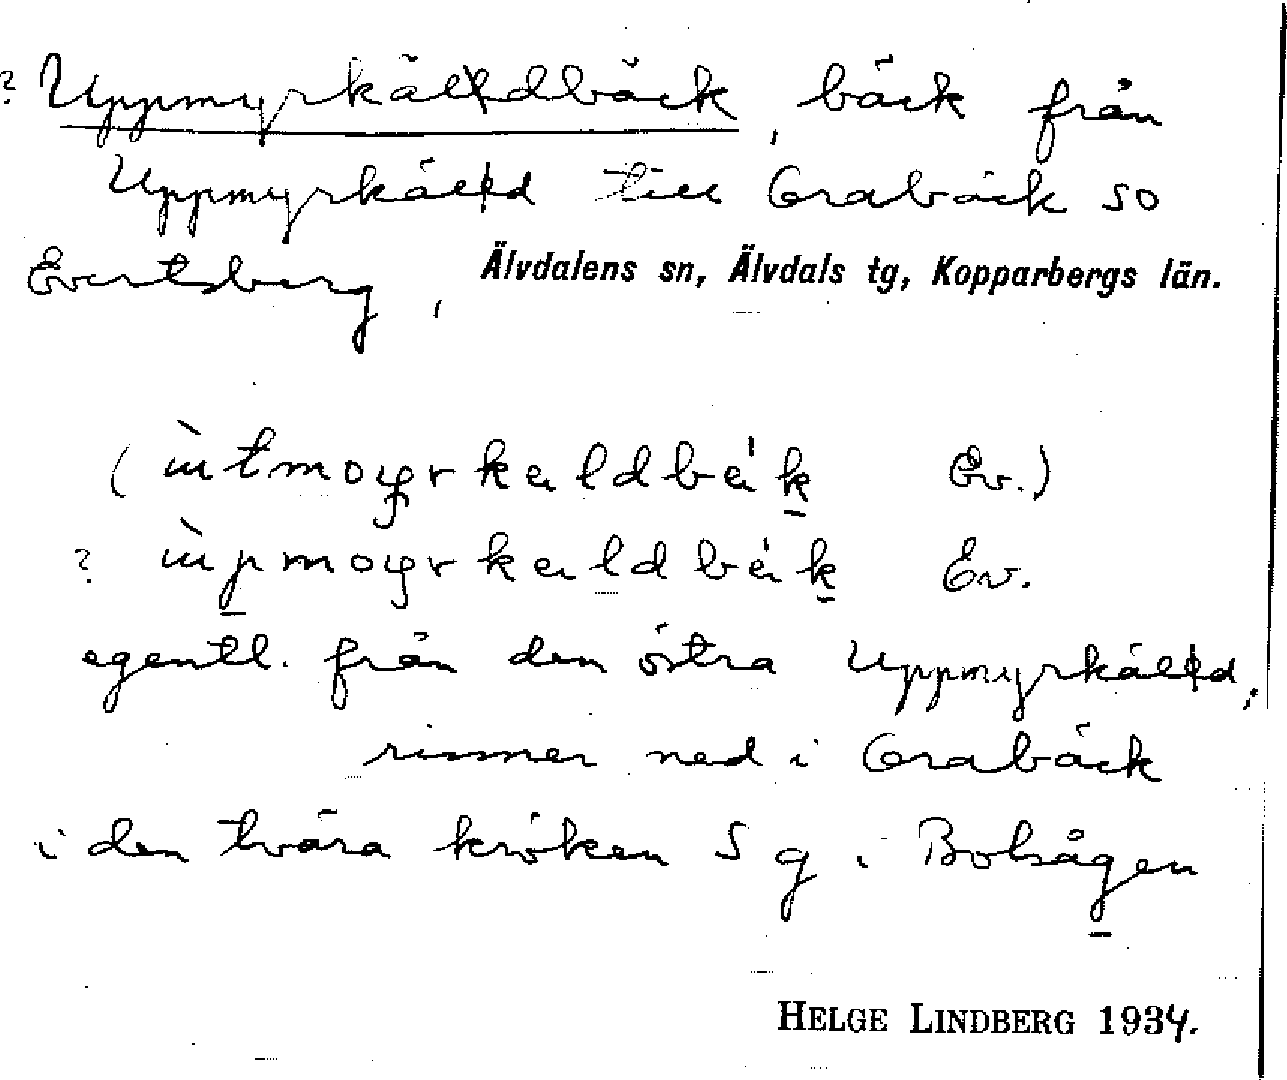 ? Uppmyrkälldbäck, bäck från
Uppmyrkälld till Grabäck so
Evertsberg, Älvdalens sn, Älvdals tg, Kopparbergs län.
Ev.)
? Ev.
egentl. från den östra Uppmyrkälld;
rinner ned i Grabäck
i den tvära kröken S g i Bolsågen
HELGE LINDBERG 1934.